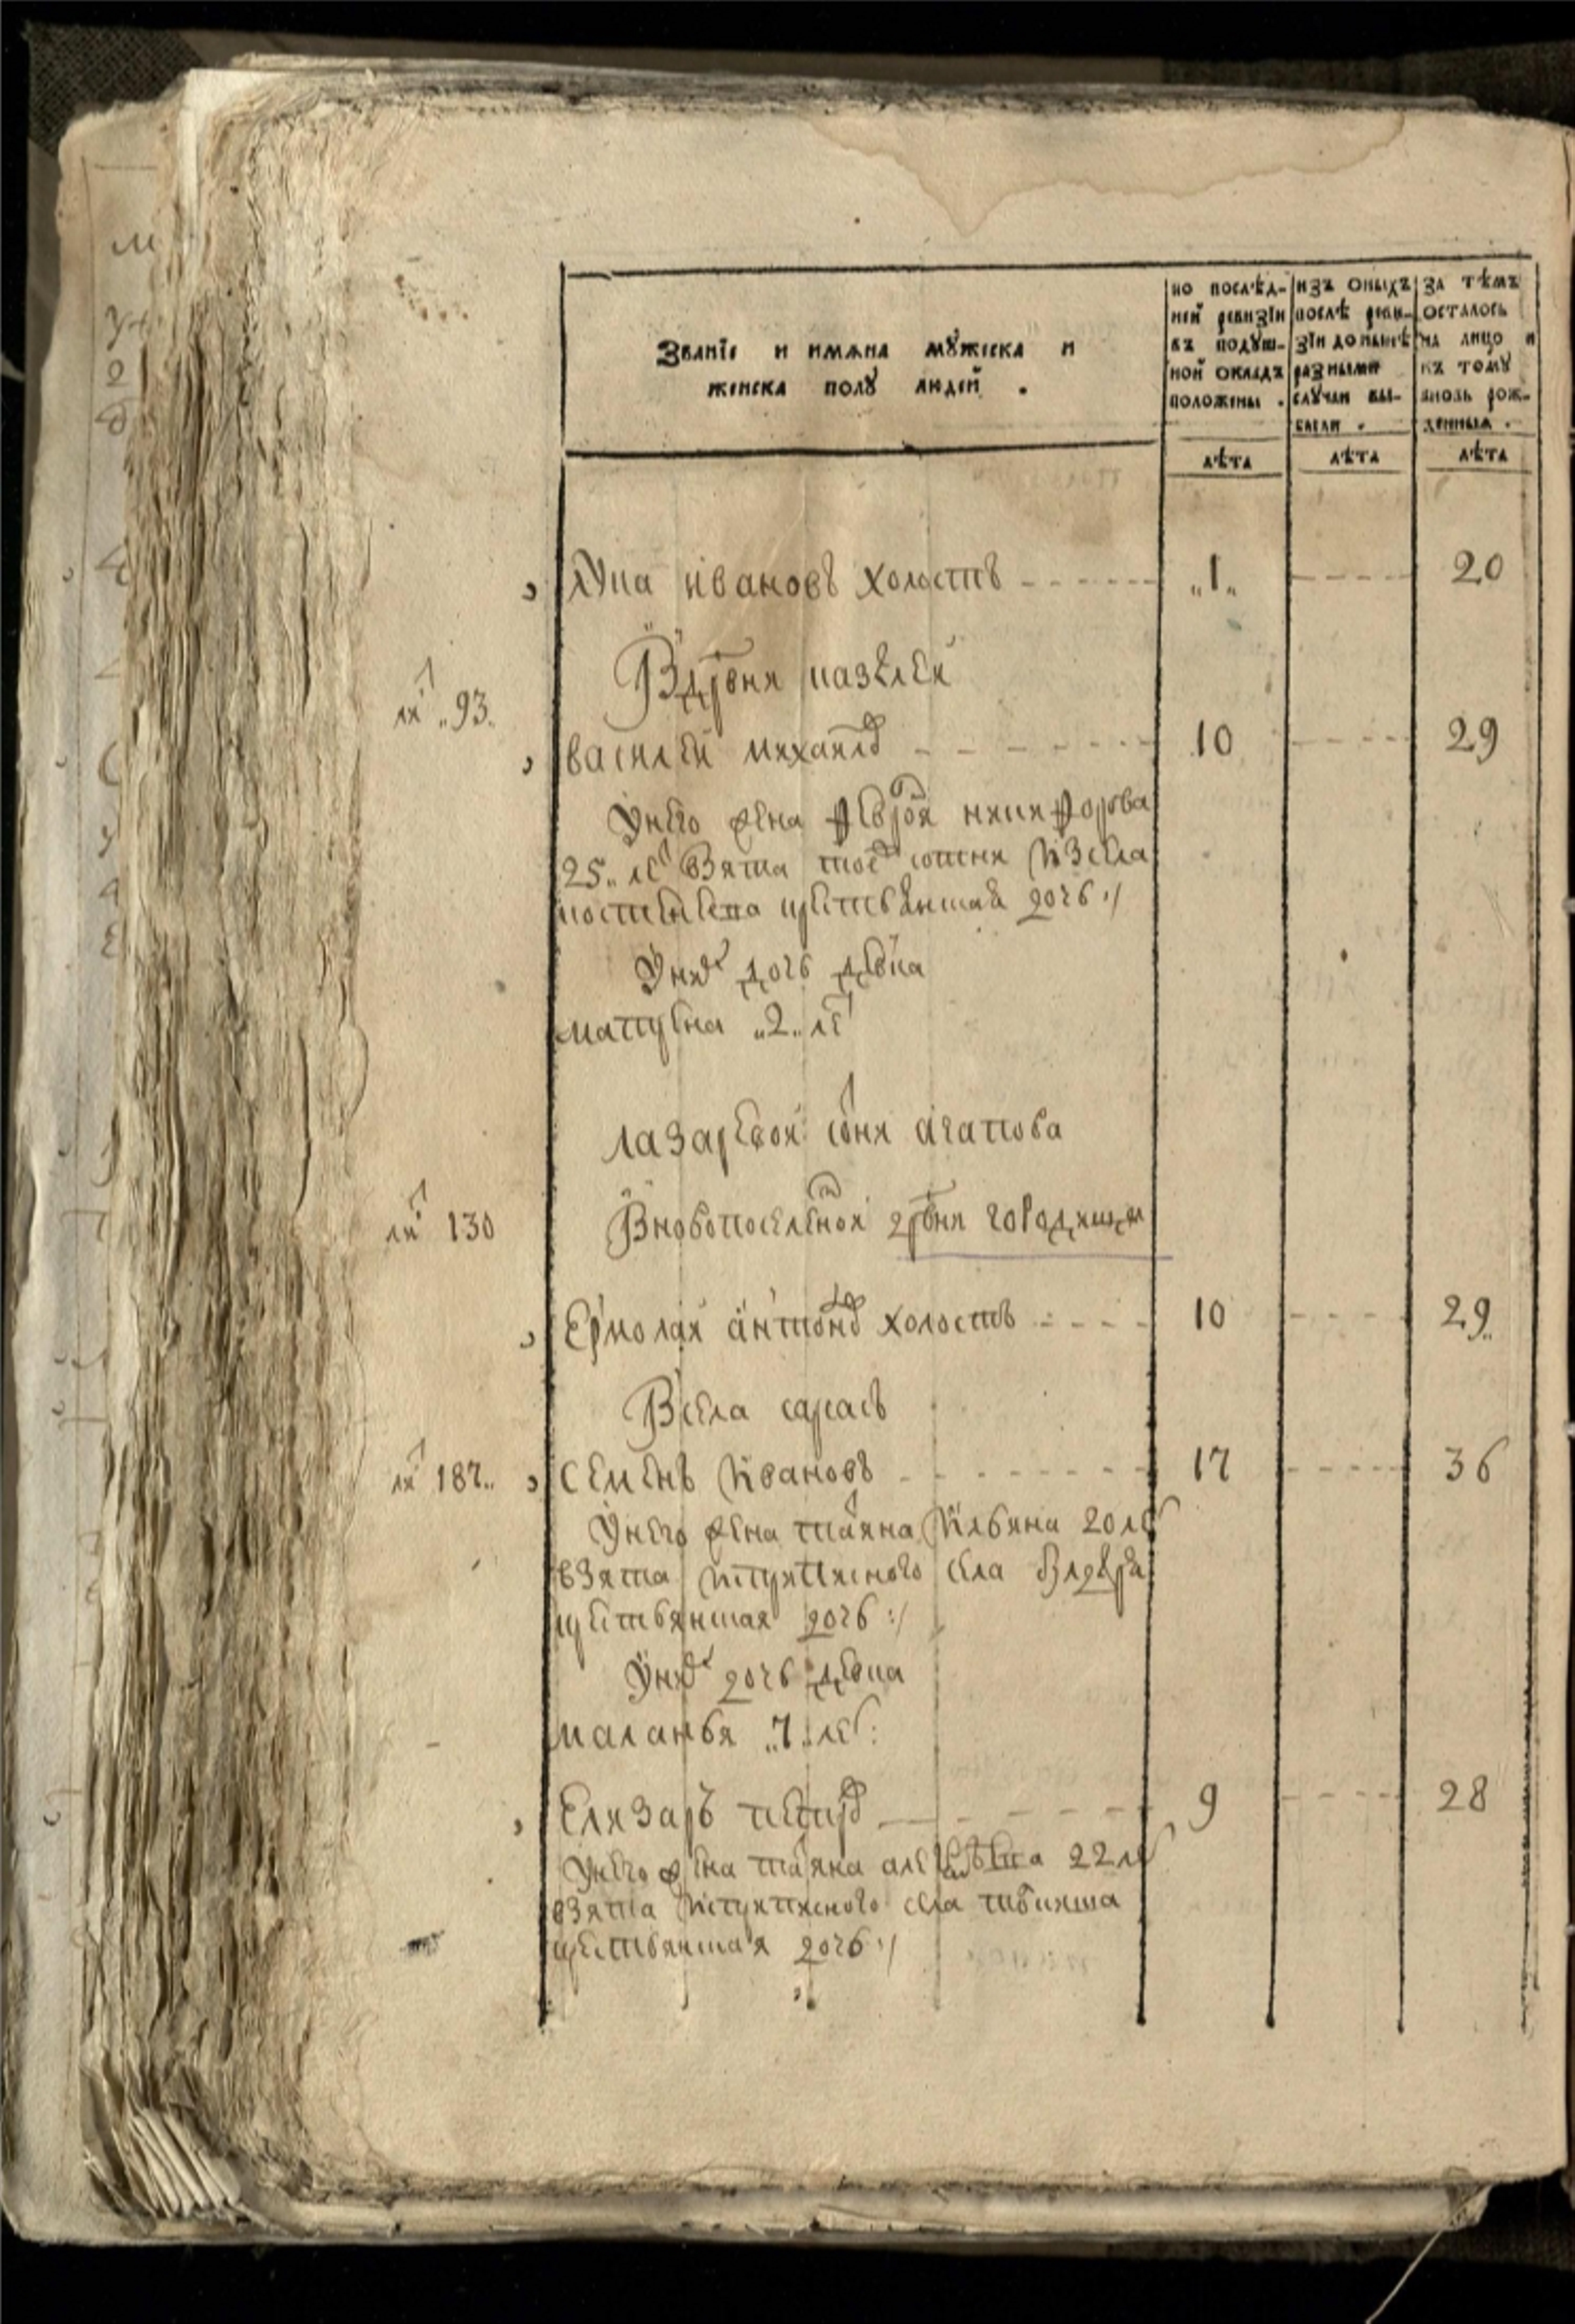 Званїе и имѧна мꙋжеска и
женска полꙋ людей .
по послѣд-
ней ревизїи
въ подꙋш-
ной окладъ
положены .
изъ оныхъ
послѣ реви-
зїи до нынѣ
разными
слꙋчаи вы-
были .
за тѣмъ
осталось
на лицо и
къ томꙋ
вновь рож-
денныя .
лѣта лѣта лѣта
Лупа ивановъ холостъ „1„ 20
Вдрвня
ли 93.
василей михаилов 10 29
Унего жена феврон никифорова
25 ле взята тое сотни изсела
крестьянина дочь :/
Уних дочь девка
матрена „2„ ле
лазаревой сотни агапова
ли 130 Вновопоселеной дрвни городищи
Ермолай антонов холостъ 10 29
Всела сарасъ
ли 187 семенъ ивановъ 17 36
Унего жена татяна ильина 20 ле
взята села
крестьянина дочь :/
Уних дочь девка
маланья „7„ ле
Елизаръ петров 9 28
Унего жена татяна 22 ле
взята села
крестьянина дочь :/